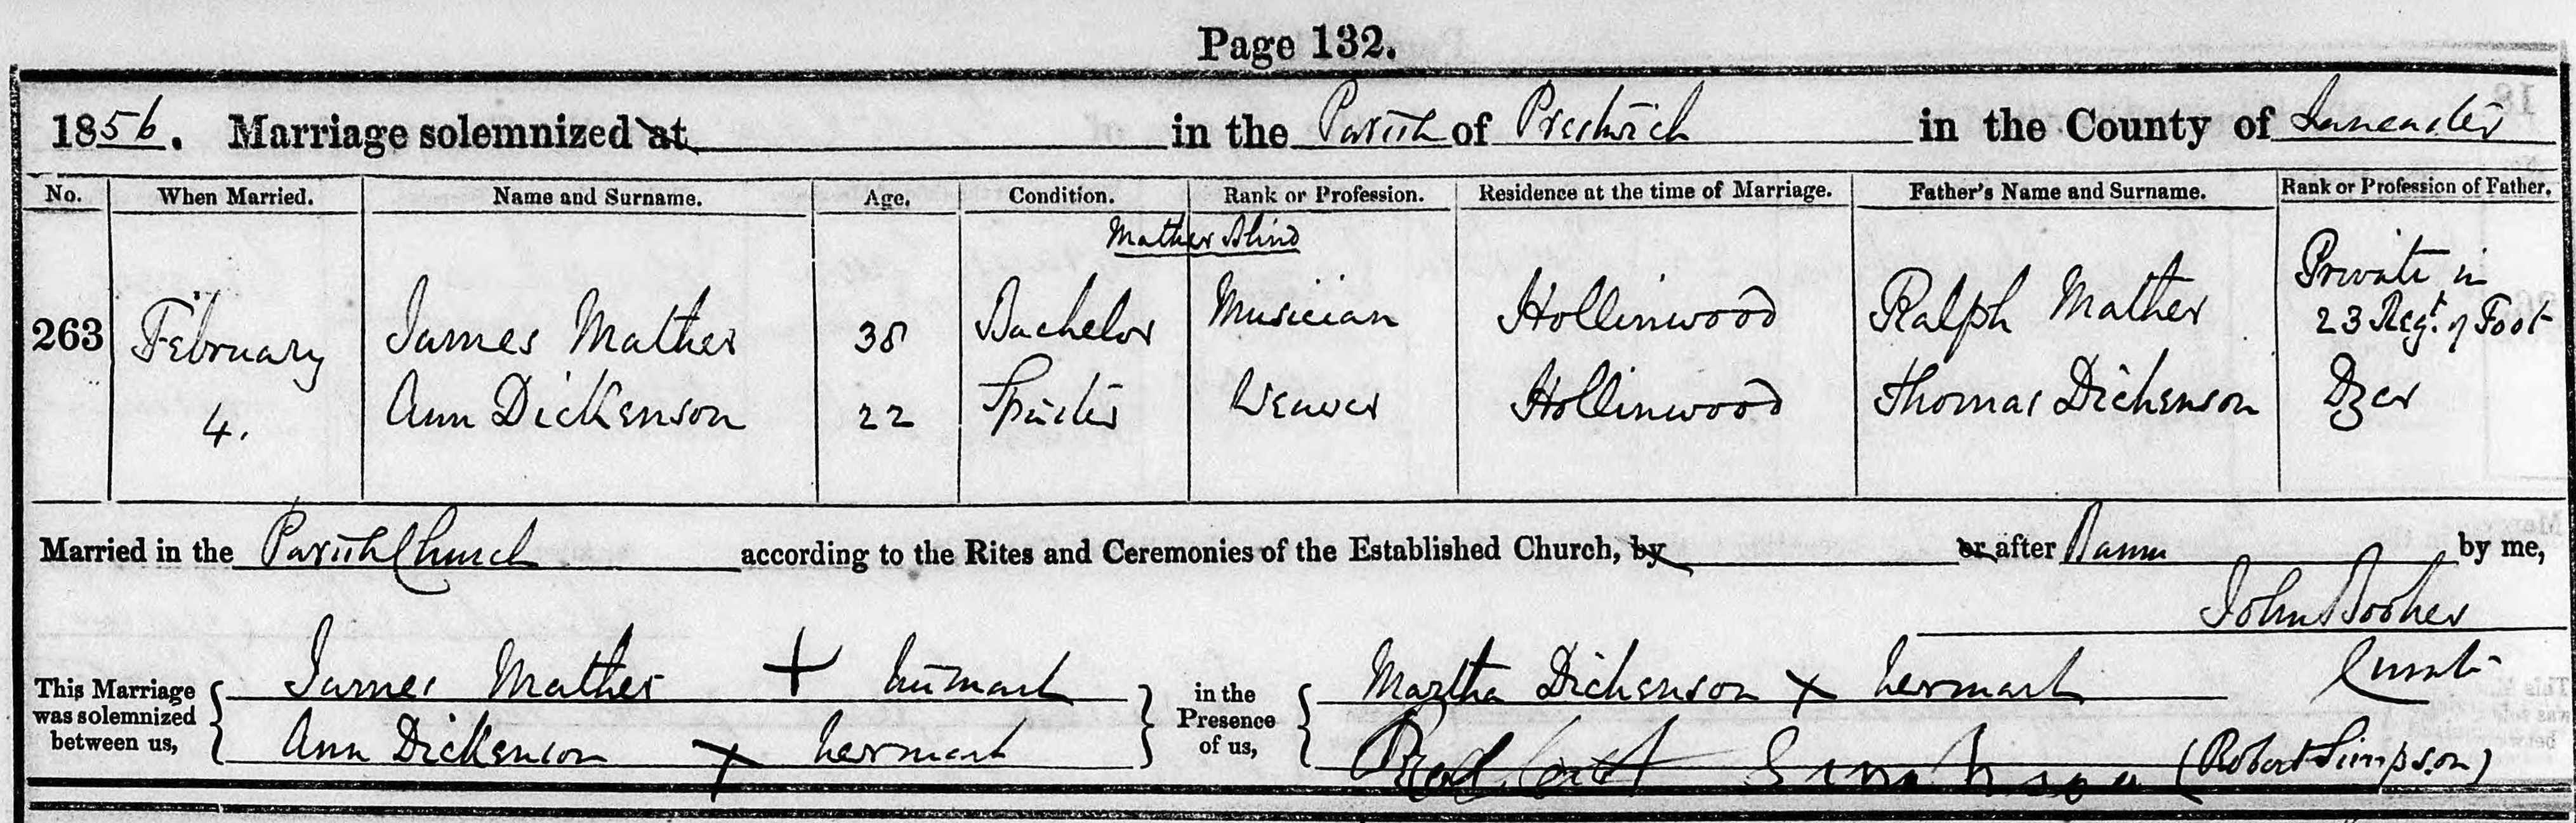 Page 132.
1856. Marriage solemnized at in the Parish of Prestwich in the County of Lancaster
No. When Married. Name and Surname. Age. Condition. Rank or Profession. Residence at the time of Marriage. Father's Name and Surname. Rank or Profession of Father.
Mather Blind
263 February James Mather 38 Bachelor Musician Hollinwood Ralph Mather Private in 23 Regt. of Foot
4. Ann Dickenson 22 Spinster Weaver Hollinwood Thomas Dickenson Dyer
Married in the Parish Church according to the Rites and Ceremonies of the Established Church, by or after Banns by me,
John Booker
Curate
This Marriage was solemnized between us, James Mather + his mark in the Presence of us, Martha Dickenson x her mark
Ann Dickenson x her mark (Robert Simpson)